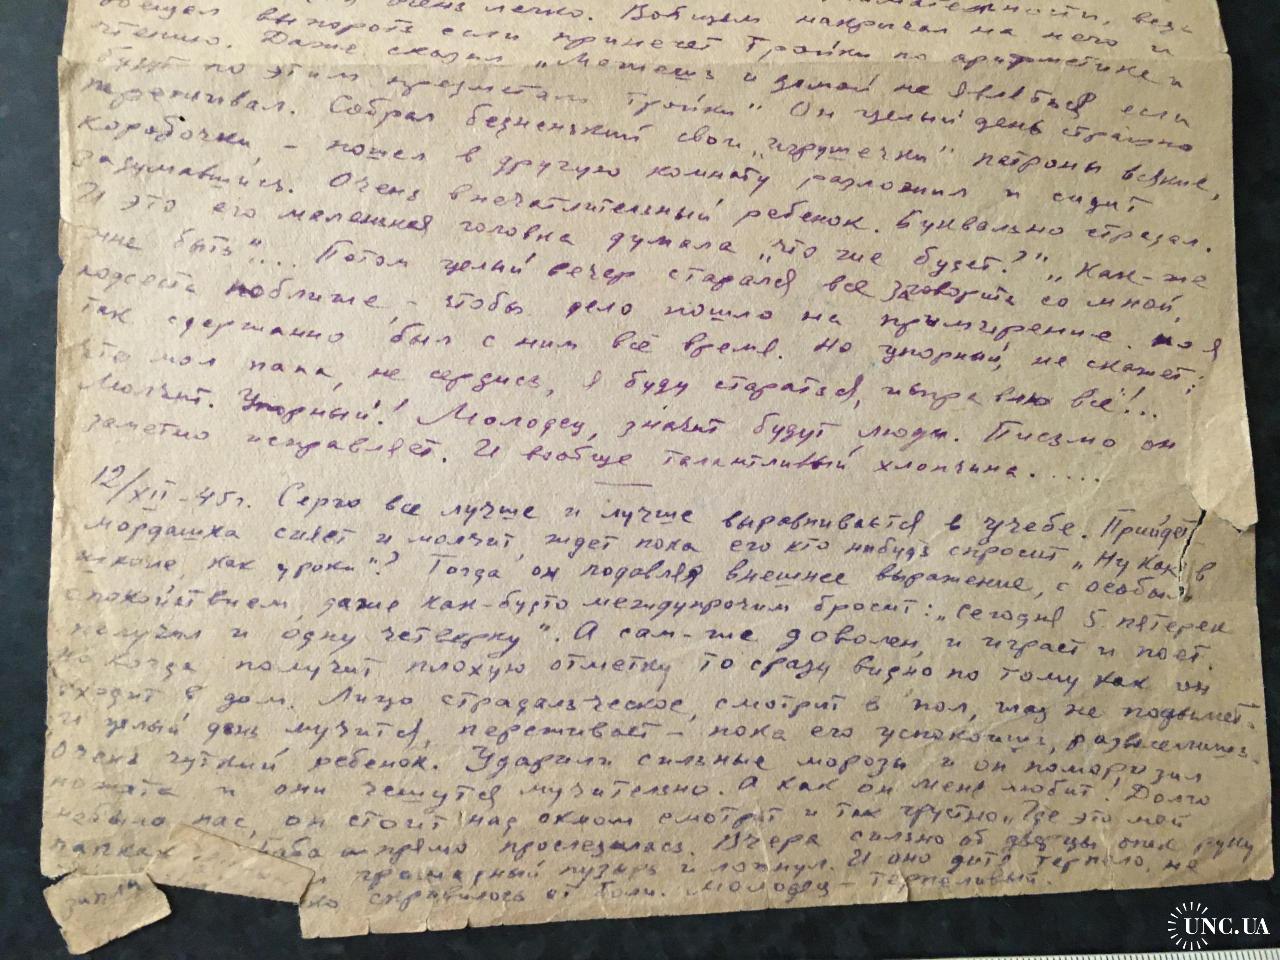 очень легко. Вобщем накричал на него и
обещал выпороть если принесет тройки по арифметике и
чтению. Даже сказал „Можешь и домой не являться если
будут по этим предметам тройки" Он целый день страшно
переживал. Собрал бедненький свои „игрушечки" патроны всякие,
коробочки, – пошел в другую комнату разложил и сидит
задумавшись. Очень впечатлительный ребенок. Буквально страдал.
И это его маленькая головка думала „что-же будет?" „Как-же
мне быть"... Потом целый вечер старался все заговорить со мной,
подсесть поближе, – чтобы дело пошло на примирение. но я
так сдержанно был с ним всё время. Но упорный, не скажет:
что мол папа, не сердись, я буду стараться, исправлю всё!...
Молчит. Упорный! Молодец, значит будут люди. Письмо он
заметно исправляет. И вообще талантливый хлопчина.....
12/XII-45г. Серго все лучше и лучше выравнивается в учебе. Прийдет
мордашка сияет и молчит, ждет пока его кто нибудь спросит „Ну как в
школе, как уроки"? Тогда он подавляя внешнее выражение, с особым
спокойствием, даже как-будто междупрочим бросит: „Сегодня 5 пятерек
получил и одну четверку". А сам-же доволен, и играет и поет.
но когда получит плохую отметку то сразу видно по тому как он
входит в дом. Лицо страдальческое, смотрит в пол, глаз не подымет
и целый день мучится, переживает – пока его успокоишь, развеселишь.
Очень чуткий ребенок. Ударили сильные морозы и он поморозил
ножата и они чешутся мучительно. А как он меня любит! Долго
небыло нас, он стоит над окном смотрит и так грустно „Где это мой
папка" баба а прямо прослезилась. Вчера сильно об дверцы опек руку
громадный пузырь и лопнул. И оно дитя терпело, не
запла скривилось от боли. Молодец – терпеливый.
UNC.UA